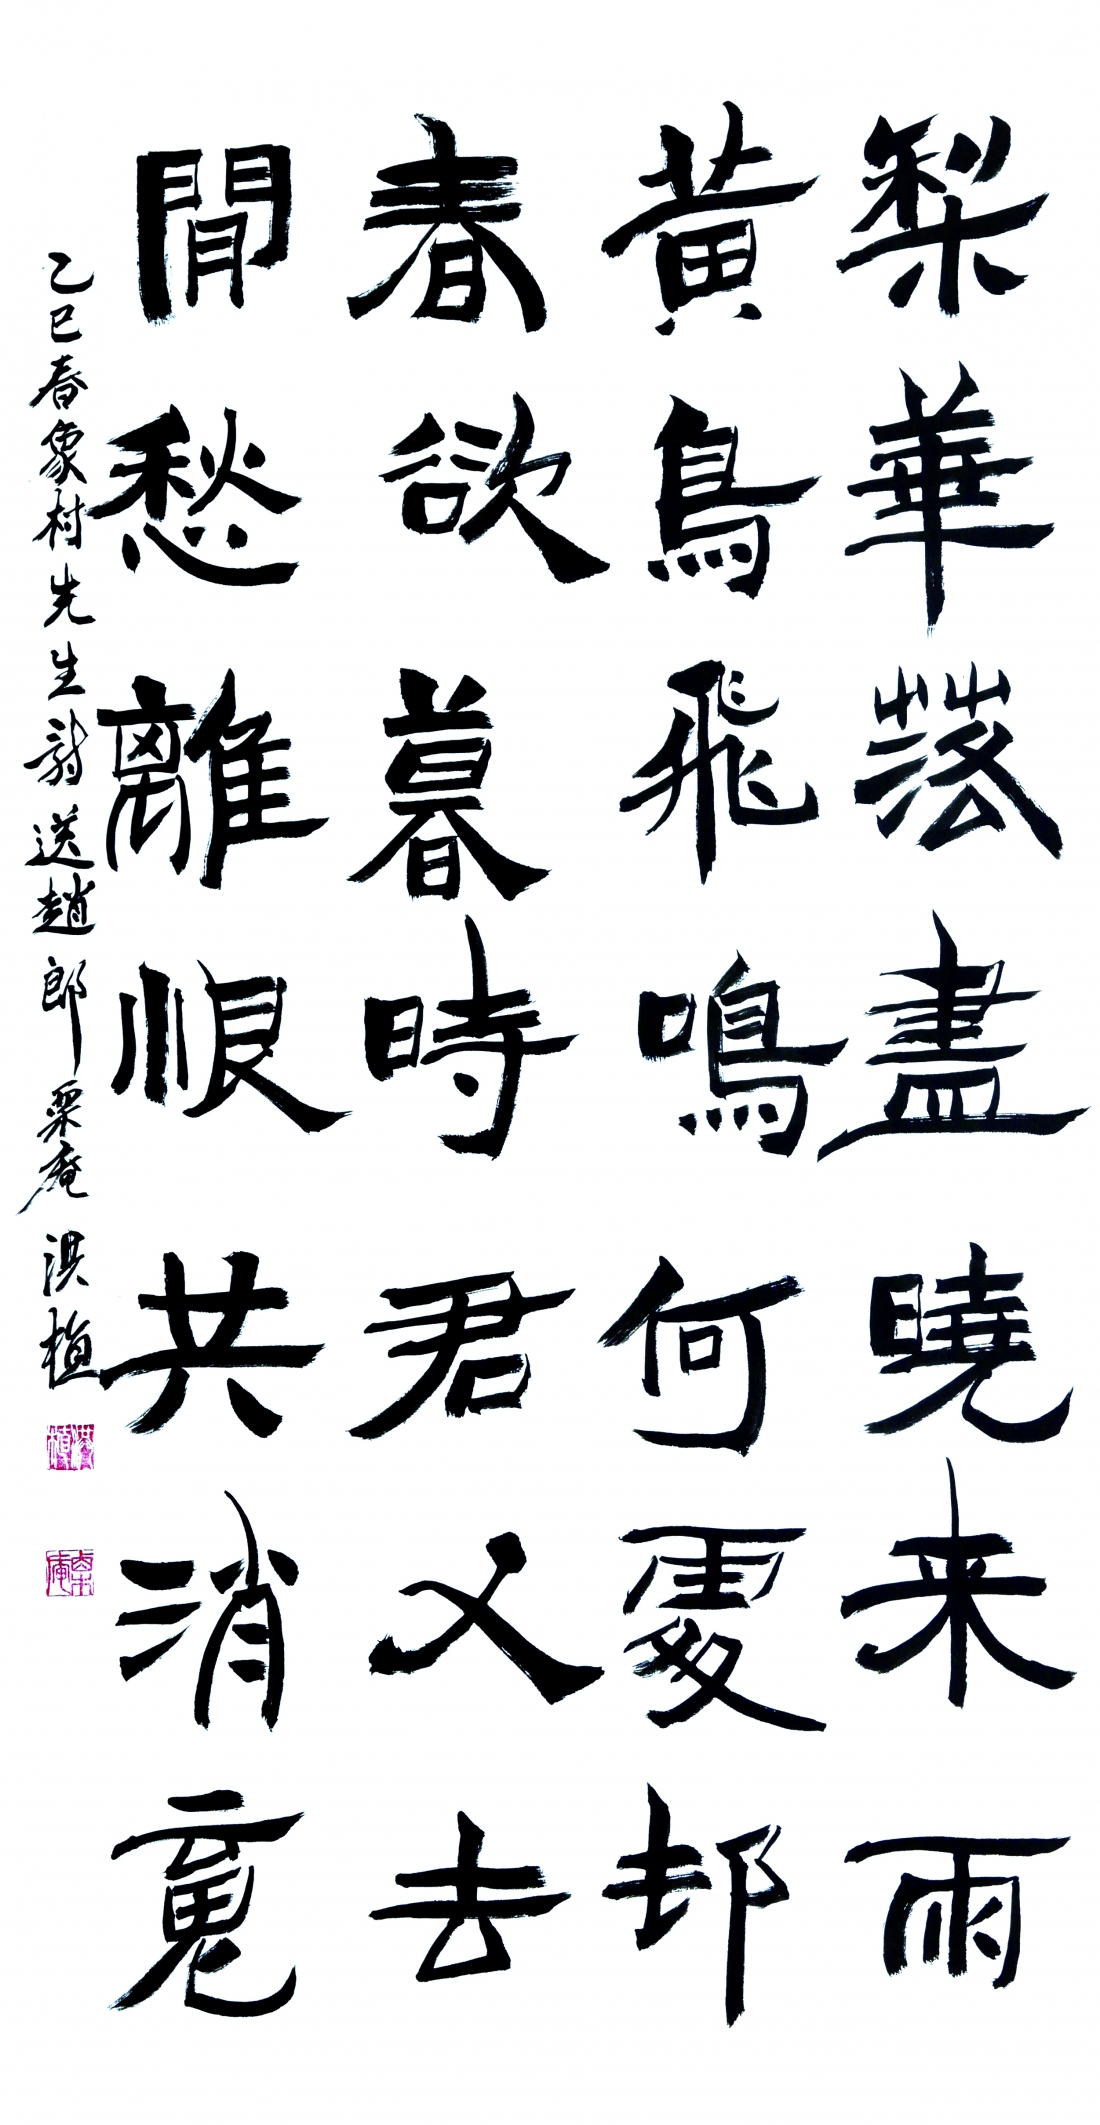 梨華落盡曉来雨
黃鳥飛鳴何處邨
春欲暮時君又去
閒愁離恨共消䰟
乙巳春象村先生詩送趙郎 栗庵 洪植